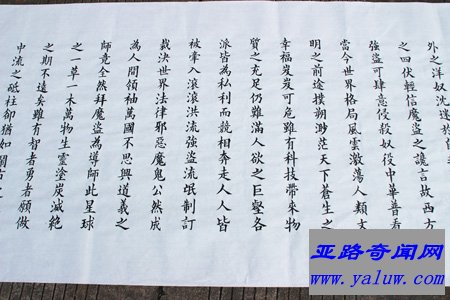 外之洋奴沈迷於
之四伏輕信魔盜之讒言故西方
強盜可肆意侵殺奴役中華普看
當今世界格局風雲激蕩人類文
明之前途撲朔渺茫天下蒼生之
幸福岌岌可危雖有科技帶來物
質之充足仍難滿人欲之巨壑各
派皆為私利而競相奔走人人皆
被牽入滾滾洪流強盜流氓制訂
裁決世界法律邪惡魔鬼公然成
為人間領袖萬國不思興道義之
師竟全然拜魔盜為導師此星球
之一草一木萬物生靈塗炭滅絕
之期不遠矣雖有智者勇者願做
中流之砥柱卻猶如
亚路奇闻网
www.yaluw.com